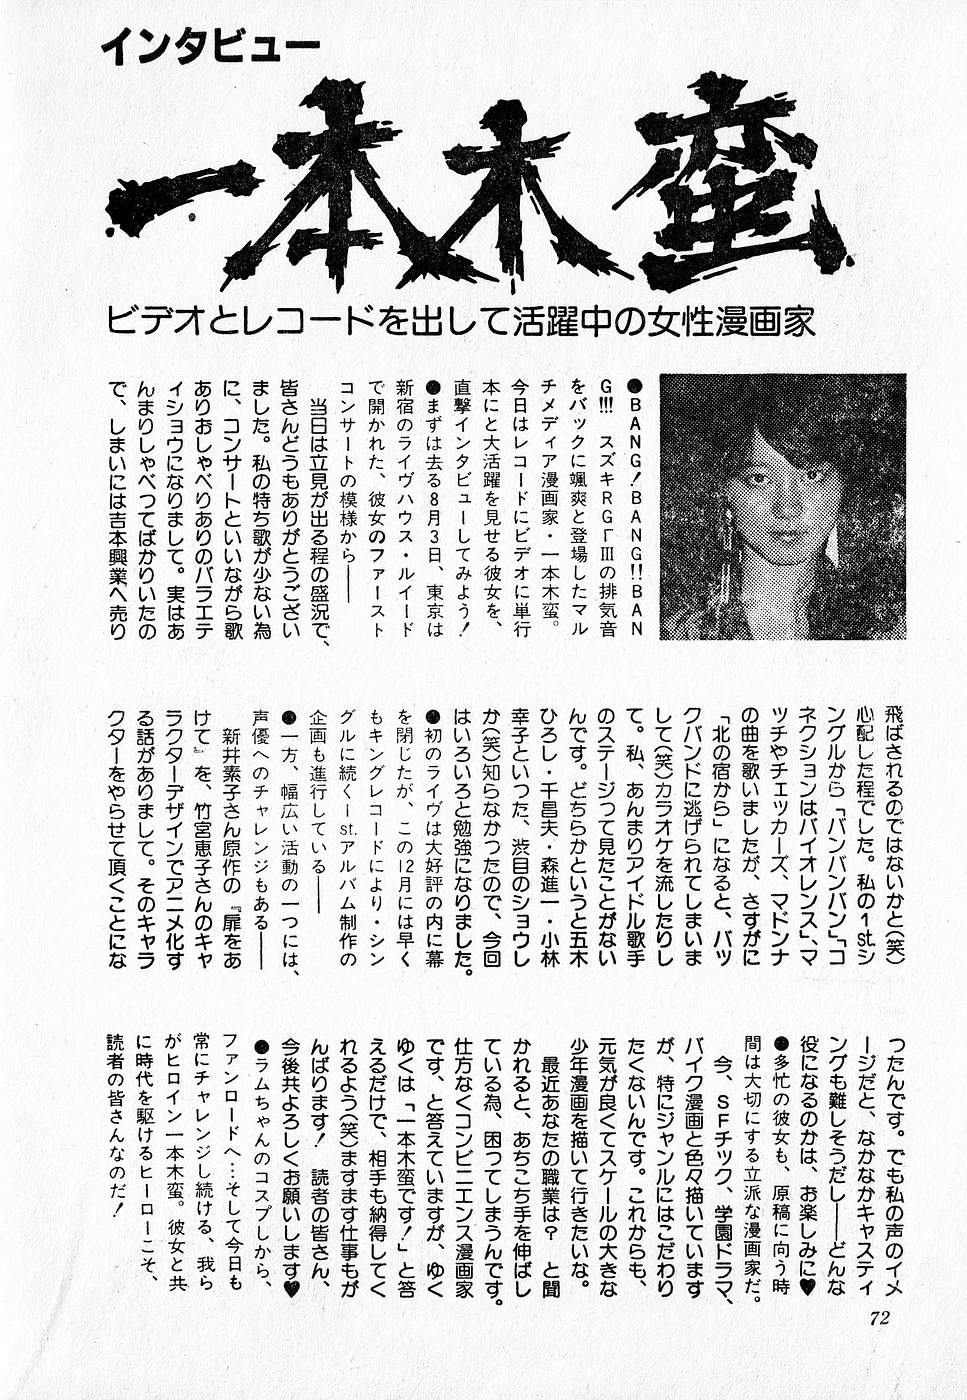 インタビュー
一本木蛮
ビデオとレコードを出して活躍中の女性漫画家
●BANG!BANG!!BAN
G!!! スズキRGΓⅢの排気音
をバックに颯爽と登場したマル
チメディア漫画家・一本木蛮。
今日はレコードにビデオに単行
本にと大活躍を見せる彼女を、
直撃インタビューしてみよう!
●まずは去る8月3日、東京は
新宿のライヴハウス・ルイード
で開かれた、彼女のファースト
コンサートの模様から──
当日は立見が出る程の盛況で、
皆さんどうもありがとうござい
ました。私の持ち歌が少ない為
に、コンサートといいながら歌
ありおしゃべりありのバラエテ
ィショウになりまして。実はあ
んまりしゃべってばかりいたの
で、しまいには吉本興業へ売り
飛ばされるのではないかと(笑)
心配した程でした。私の1st.シ
ングルから「バンバンバン」「コ
ネクションはバイオレンス」、マ
ッチやチェッカーズ、マドンナ
の曲を歌いましたが、さすがに
「北の宿から」になると、バッ
クバンドに逃げられてしまいま
して(笑)カラオケを流したりし
て。私、あんまりアイドル歌手
のステージって見たことがない
んです。どちらかというと五木
ひろし・千昌夫・森進一・小林
幸子といった、渋目のショウし
か(笑)知らなかったので、今回
はいろいろと勉強になりました。
●初のライヴは大好評の内に幕
を閉じたが、この12月には早く
もキングレコードにより・シン
グルに続く1st.アルバム制作の
企画も進行している──
●一方、幅広い活動の一つには、
声優へのチャレンジもある──
新井素子さん原作の『扉をあ
けて』を、竹宮恵子さんのキャ
ラクターデザインでアニメ化す
る話がありまして。そのキャラ
クターをやらせて頂くことにな
ったんです。でも私の声のイメ
ージだと、なかなかキャスティ
ングも難しそうだし──どんな
役になるのかは、お楽しみに♥
●多忙の彼女も、原稿に向う時
間は大切にする立派な漫画家だ。
今、SFチック、学園ドラマ、
バイク漫画と色々描いています
が、特にジャンルにはこだわり
たくないんです。これからも、
元気が良くてスケールの大きな
少年漫画を描いて行きたいな。
最近あなたの職業は? と聞
かれると、あちこち手を伸ばし
ている為、困ってしまうんです。
仕方なくコンビニエンス漫画家
です、と答えていますが、ゆく
ゆくは「一本木蛮です!」と答
えるだけで、相手も納得してく
れるよう(笑)ますます仕事もが
んばります! 読者の皆さん、
今後共よろしくお願いします♥
●ラムちゃんのコスプレから、
ファンロードへ…そして今日も
常にチャレンジし続ける、我ら
がヒロイン一本木蛮。彼女と共
に時代を駆けるヒーローこそ、
読者の皆さんなのだ!
72